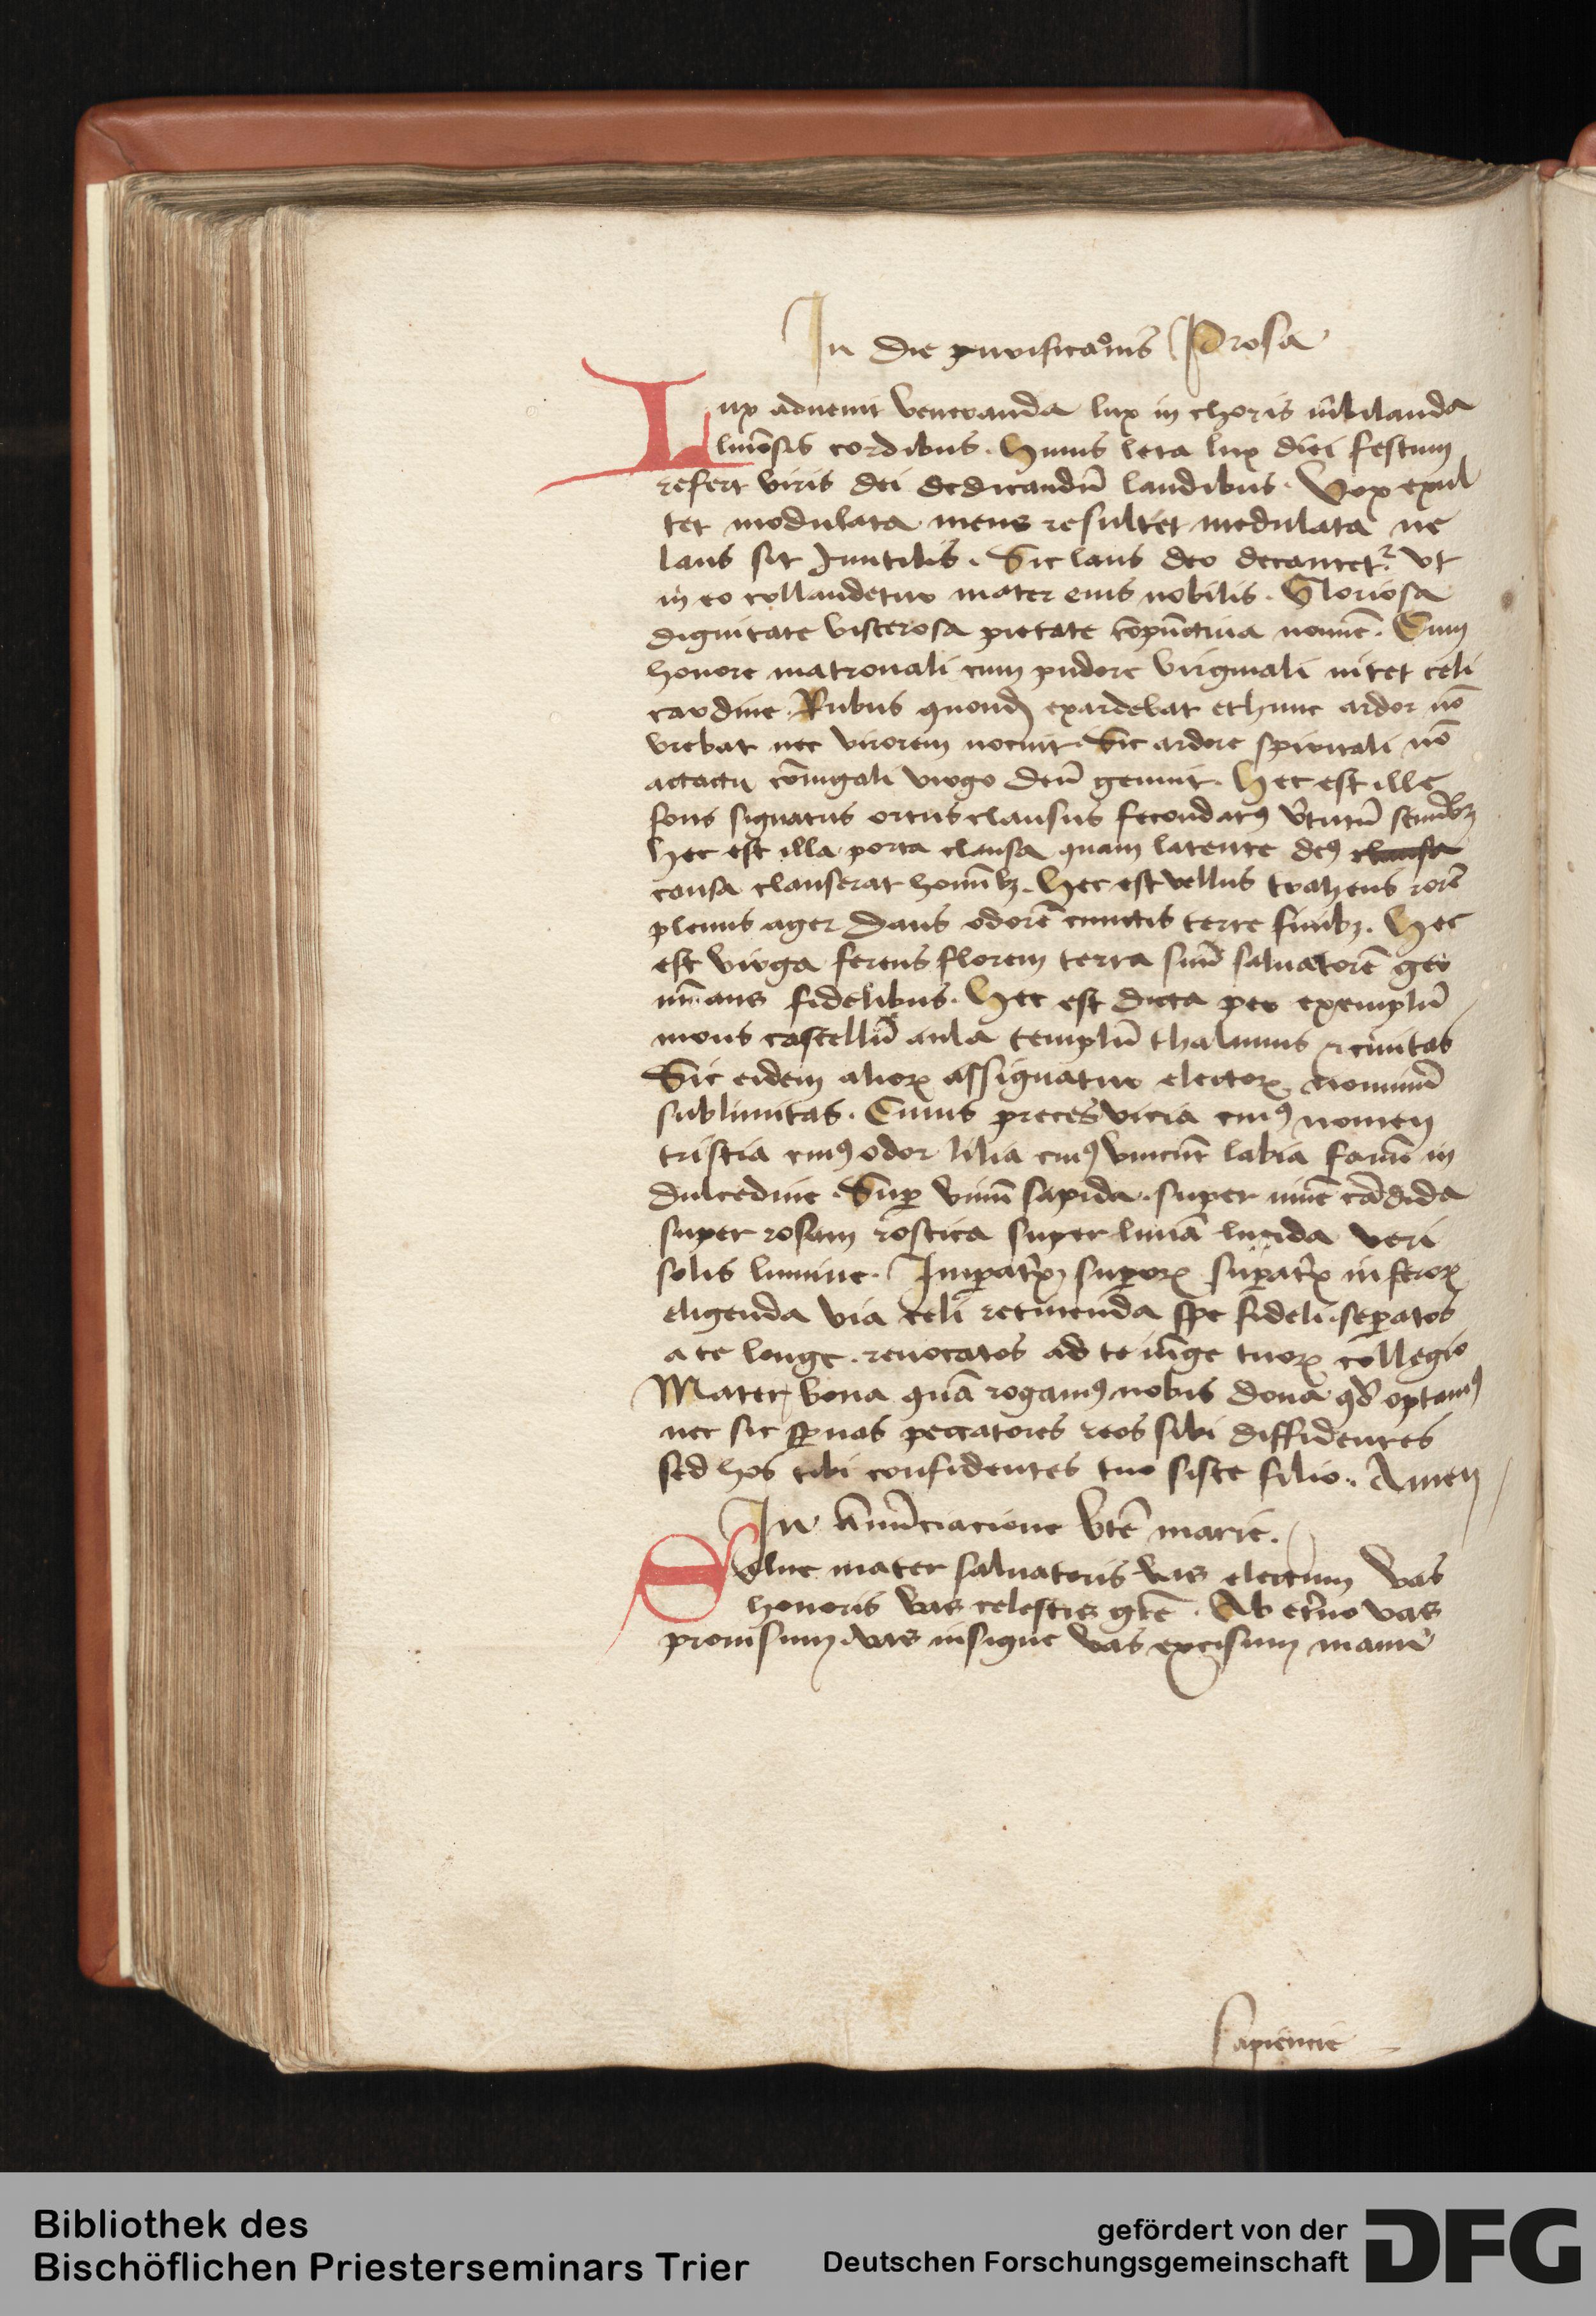 In die purificaōnis Prosa
Lux aduenit veneranda lux in choris iubilanda
luminosis cordibus. Huius leta lux diei festum
refert viris dei dedicandū laudibus. Vox exul
tet modulata mens resultet medulata ne
laus sit Inutilis. Sic laus deo decantet² vt
in eo collaudetur mater eius nobilis. Gloriosa
dignitate viscerosa pietate cōpūctiua nomīe. Cum
honore matronali cum pudore virginali nitet celi
cardine. Rubus quondā exardebat et hunc ardor nō
vrebat nec virorem nocuit. Sic ardore spiritali nō
attactu cōiugali virgo deū genuit. Hec est ille
fons signatus ortus clausus fecondatꝰ v̄tutū semībꝫ
hec est illa porta clausa quam latente deꝰ clausa
causa clauserat homībꝫ. Hec est vellus trahens rorē
plenus ager dans odorē cunctis terre finibꝫ. Hec
est virga ferens florem terra suū saluatorē ger
minans fidelibus. Hec est dicta per exemplū
mons castellū aula templū thalamus et ciuitas
Sic eidem alioꝝ assignatur electoꝝ nominū
sublimitas. Cuius preces vicia cuiꝰ nomen
tristia cuiꝰ odor lilia cuiꝰ vincūt labia fauū in
dulcedine. Suꝑ vinū sapida. super niuē cādida
super rosam roscita super lunā lucida veri
solis lumine. Imperatrix superoꝝ superatrix inferoꝝ
eligenda via celi retinenda spe fideli. seperatos
a te longe. reuocatos ad te iūge tuoꝝ collegio
Mater bona quā rogamꝰ nobis dona qd optamꝰ
nec sic spernas peccatores reos sibi diffidentes
sed hos tibi confidentes tuo siste filio. Amen
In Annūciacione btē marie.
Salue mater saluatoris vas electum vas
honoris vas celestis grē. Ab eterno vas
prouisum. vas insigne vas excisum manu
sapiencie
Bibliothek des
Bischöflichen Priesterseminars Trier
gefördert von der
Deutschen Forschungsgemeinschaft
DFG